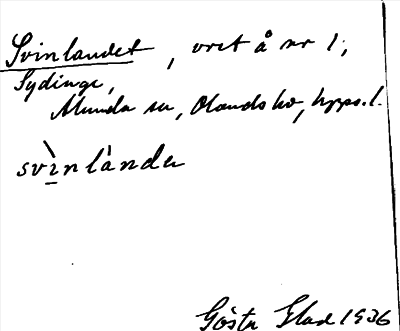 Svinlandet, vret å nr 1;
Sydinge,
Munda sn, Olands hd, Upps. l.
svìnlànde
Gösta Elad 1936